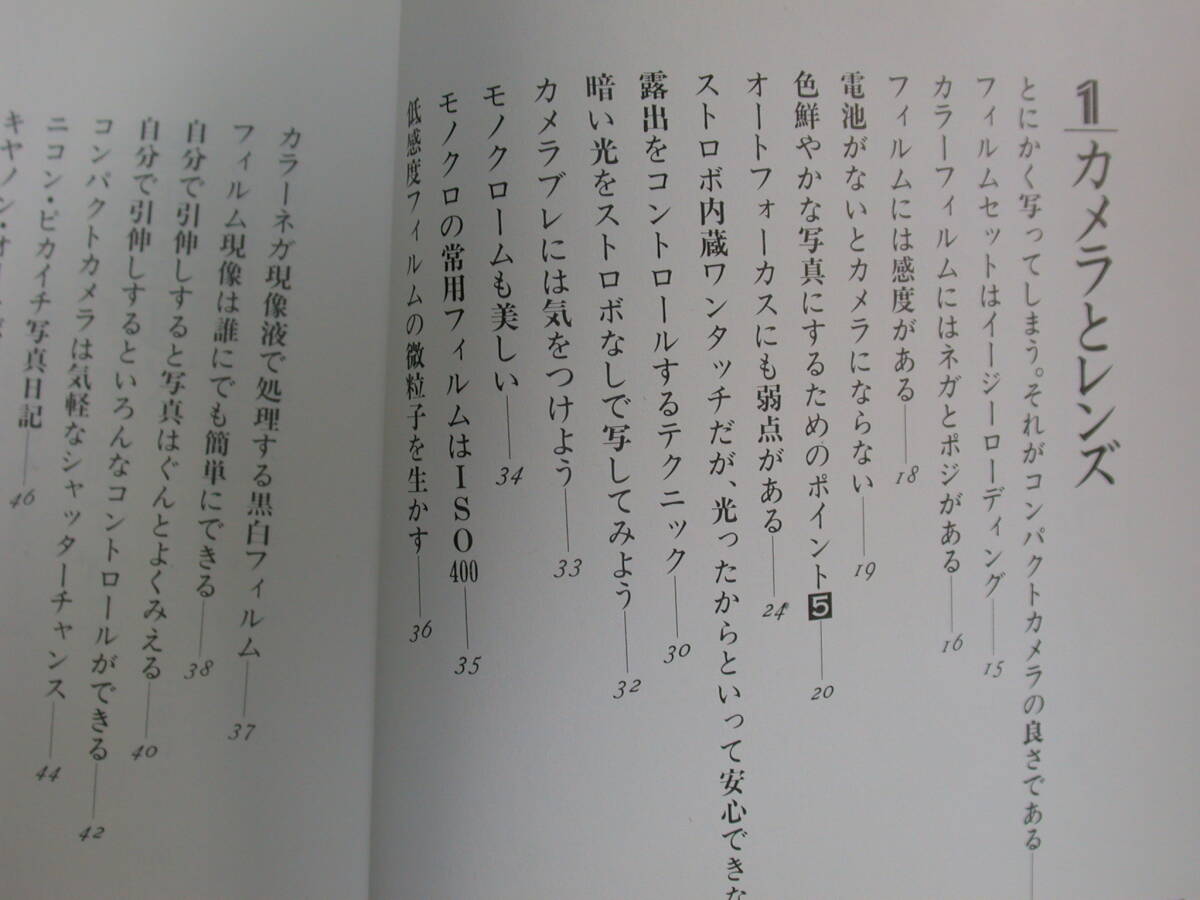 1 カメラとレンズ
とにかく写ってしまう。それがコンパクトカメラの良さである——
フィルムセットはイージーローディング——15
カラーフィルムにはネガとポジがある——16
フィルムには感度がある——18
電池がないとカメラにならない——19
色鮮やかな写真にするためのポイント5——20
オートフォーカスにも弱点がある——24
ストロボ内蔵ワンタッチだが、光ったからといって安心できな
露出をコントロールするテクニック——30
暗い光をストロボなしで写してみよう——32
カメラブレには気をつけよう——33
モノクロームも美しい——34
モノクロの常用フィルムはISO400——35
低感度フィルムの微粒子を生かす——36
カラーネガ現像液で処理する黒白フィルム——37
フィルム現像は誰にでも簡単にできる——38
自分で引伸しすると写真はぐんとよくみえる——40
自分で引伸しするといろんなコントロールができる——42
コンパクトカメラは気軽なシャッターチャンス——44
ニコン・ピカイチ写真日記——46
キヤノン・オー